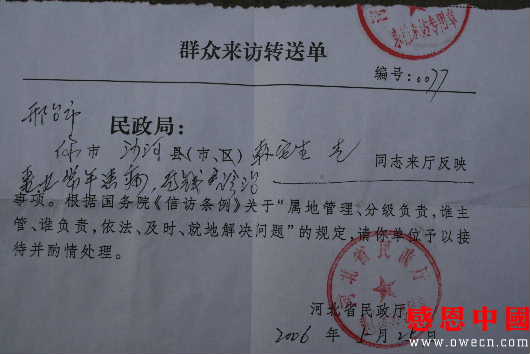 群众来访转送单
编号:0077
邢台市
民政局:
你市 沙河 县(市、区) 同志来厅反映
常年患病,无钱医治
事项。根据国务院《信访条例》关于“属地管理、分级负责,谁主
管、谁负责,依法、及时、就地解决问题”的规定,请你单位予以接
待并酌情处理。
河北省民政厅
河北省民政厅
2006 年 1 月 25 日
感恩中國
www.owecn.com